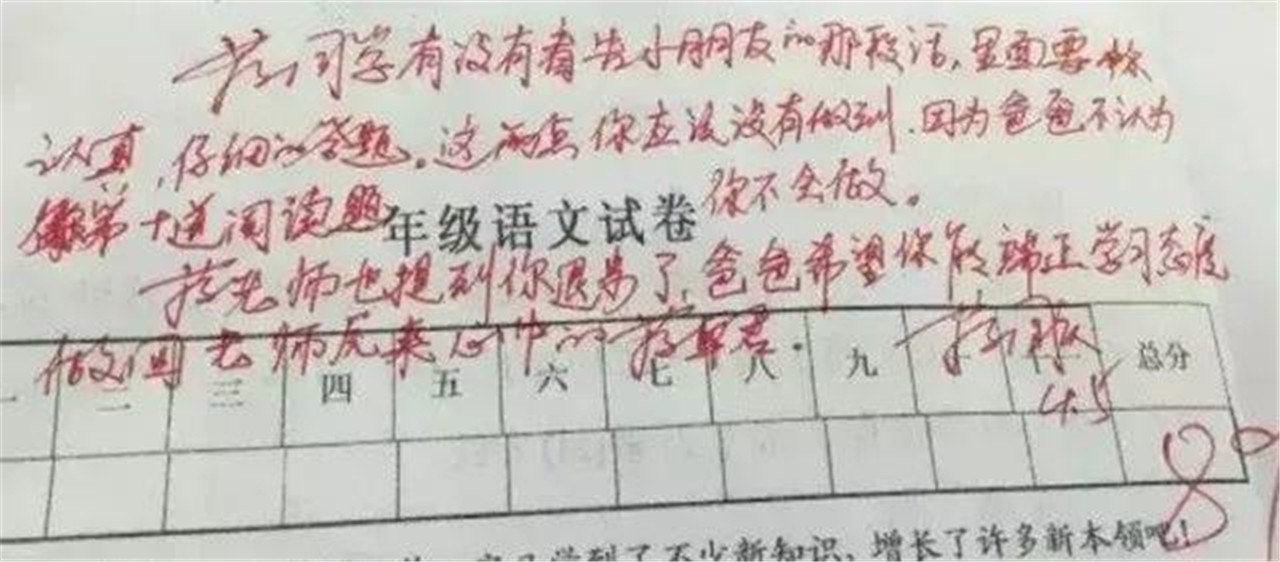 蒋同学有没有看告小朋友的那段话,里面要你
认真,仔细的答题。这两点你应该没有做到.因为爸爸不认为
第十道阅读题
你不会做。
年级语文试卷
蒋老师也提到你退步了,爸爸希望你能端正学习态度
做回老师原来心中的蒋
一 二 三 四 五 六 七 八 九 十 总分
4.5
89
学到了不少新知识,增长了许多新本领吧!